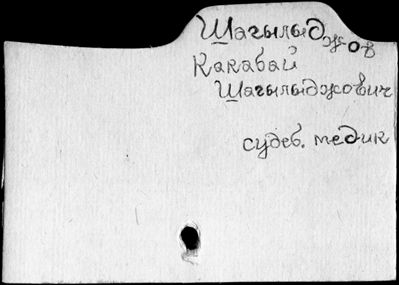 Шагылыджов
Какабай
Шагылыджович
судеб. медик